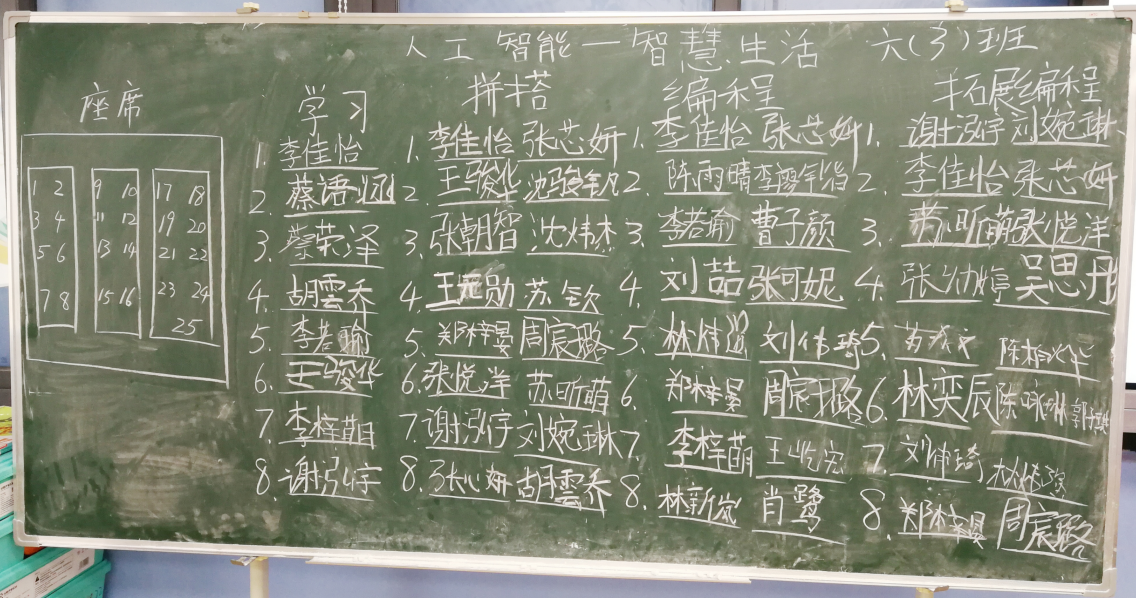 人工智能—智慧生活 六(3)班
座席
1 2 9 10 17 18
3 4 11 12 19 20
5 6 13 14 21 22
7 8 15 16 23 24
25
学习
1. 李佳怡
2. 蔡语
3. 蔡荣泽
4. 胡雲乔
5. 李若瑜
6. 王骏华
7. 李梓萌
8. 谢泓宇
拼搭
1. 李佳怡 张芯妍
2. 王骏华 沈骏钒
3. 张朝智 沈炜杰
4. 王 勋 苏钦
5. 郑梓晏 周宸璐
6. 张悦洋 苏昕萌
7. 谢泓宇 刘婉琳
8. 张心妍 胡雲乔
编程
1. 李佳怡 张芯妍
2. 陈雨晴
3. 李若瑜 曹子颜
4. 刘喆 张可妮
5. 林炜 刘伟琦
6. 郑梓晏 周宸璐
7. 李梓萌 王屹宏
8. 林新岚 肖鹭
拓展编程
1. 谢泓宇 刘婉琳
2. 李佳怡 张芯妍
3. 苏昕萌 张悦洋
4. 张幼婷 吴思彤
5.
6. 林奕辰
7. 刘伟琦
8 郑梓晏 周宸璐